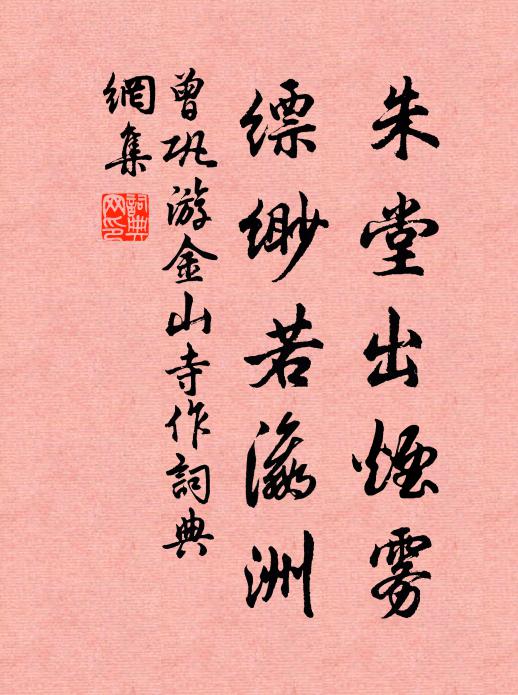 朱堂出煙雾
缥缈若瀛洲
曾巩游金山寺作詞典
網集
詞典網印